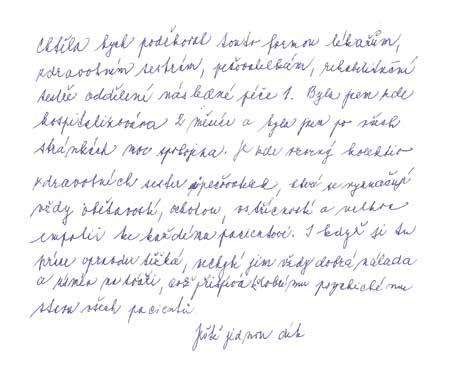 Chtěla bych poděkovat touto formou lékařům,
zdravotním sestrám, pečovatelkám, rehabilitační
sestře oddělení následné péče 1. Byla jsem zde
hospitalizována 2 měsíce a byla jsem po všech
stránkách moc spokojena. Je zde skvělý kolektiv
zdravotních sester a pečovatelek, které se vyznačují
vždy obětavostí, ochotou, vstřícností a velkou
empatií ke každému pacientovi. I když je tu
práce opravdu těžká, nechybí jim vždy dobrá nálada
a úsměv na tváři, což přispívá k dobrému psychickému
stavu všech pacientů
Ještě jednou dík